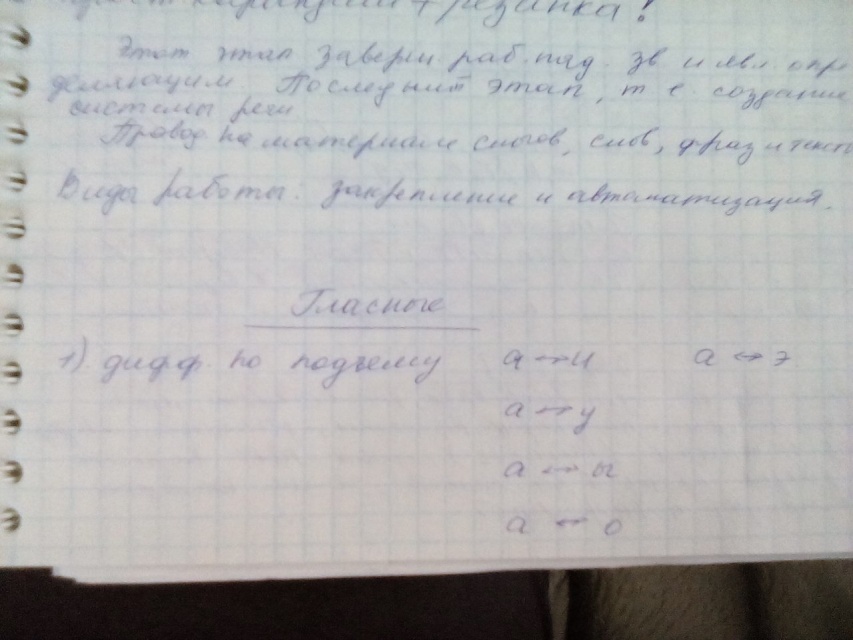 + резинка!
Этот этап заверш. раб. над. зв и явл. опре
деляющим. Последний этап, т е. создание
системы речи
Провод на материале слогов, слов, фраз и текст
Виды работы: закрепление и автоматизация.
Гласные
1) дифф. по подъему а ↔ и а ↔ э
а ↔ у
а ↔ ы
а ↔ о